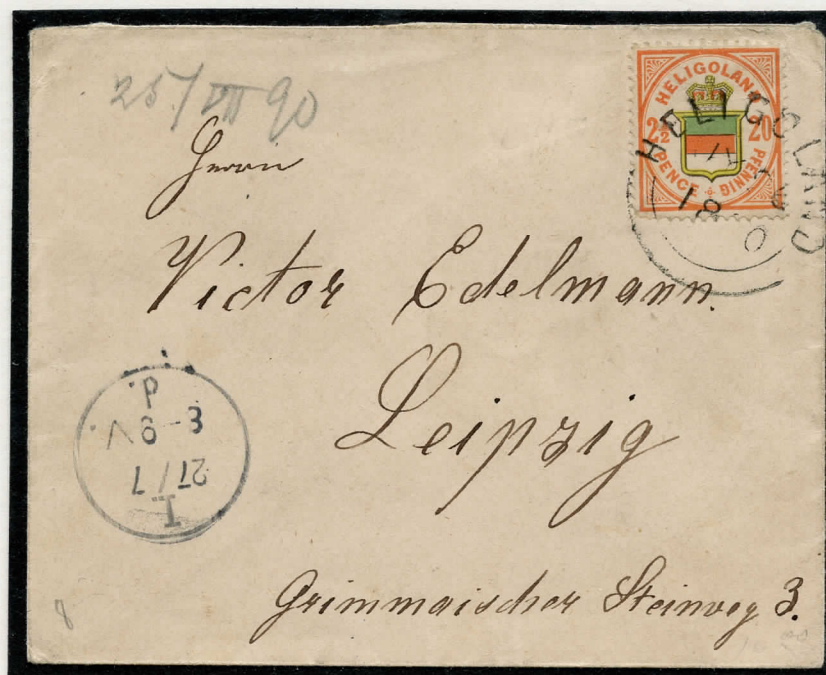 25/VII 90
HELIGOLAND
2½ 20
PENCE PFENNIG
HELIGOLAND
18 0
Herrn
Victor Edelmann.
Leipzig
Grimmaischer Steinweg 3.
I
27/7
8-9 V.
d.
8